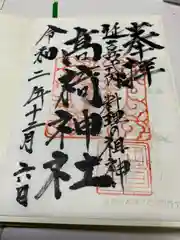 奉拝
延喜式内 料理の祖神
高椅神社
令和二年十二月六日